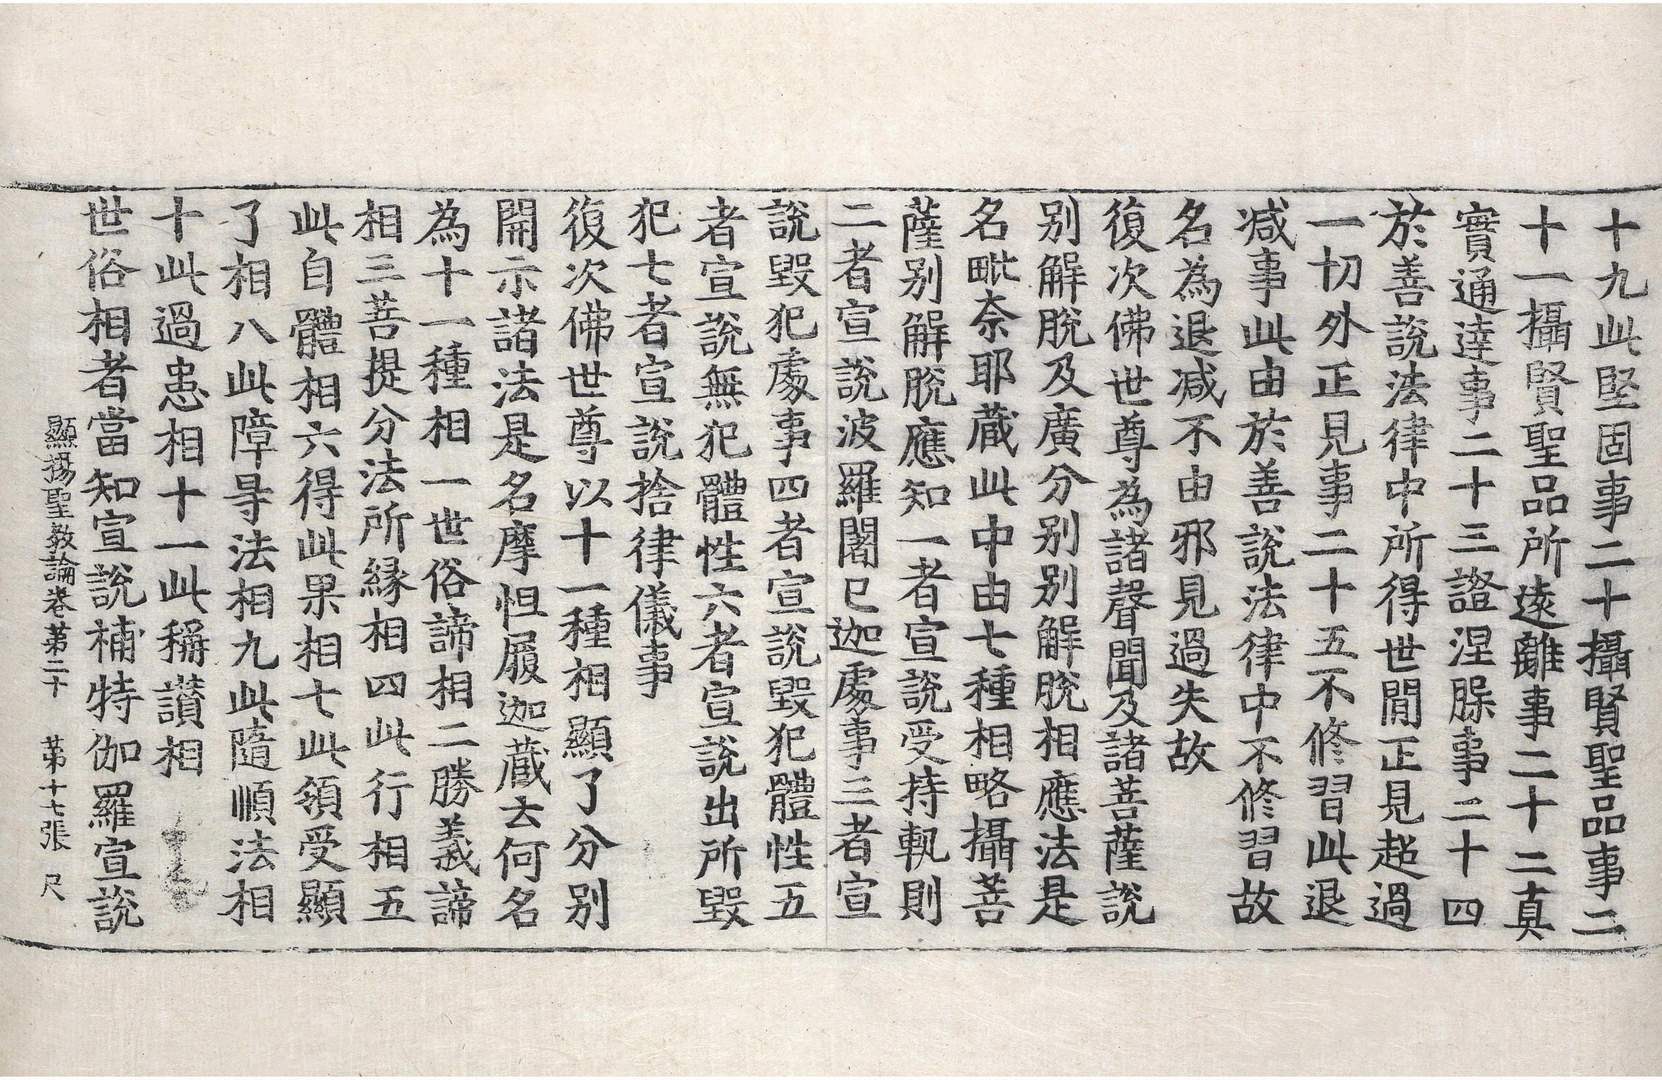 十九此堅固事二十攝賢聖品事二
十一攝賢聖品所遠離事二十二真
實通達事二十三證涅槃事二十四
於善說法律中所得世閒正見超過
一切外正見事二十五不修習此退
減事此由於善說法律中不修習故
名為退減不由邪見過失故
復次佛世尊為諸聲聞及諸菩薩說
別解脫及廣分別別解脫相應法是
名毗奈耶藏此中由七種相略攝菩
薩別解脫應知一者宣說受持軌則
二者宣說波羅闍已迦處事三者宣
說毀犯處事四者宣說毀犯體性五
者宣說無犯體性六者宣說出所毀
犯七者宣說捨律儀事
復次佛世尊以十一種相顯了分別
開示諸法是名摩怛履迦藏云何名
為十一種相一世俗諦相二勝義諦
相三菩提分法所緣相四此行相五
此自體相六得此果相七此領受顯
了相八此障㝵法相九此隨順法相
十此過患相十一此稱讚相
世俗相者當知宣說補特伽羅宣說
顯揚聖教論卷第二十 第十七張 尺